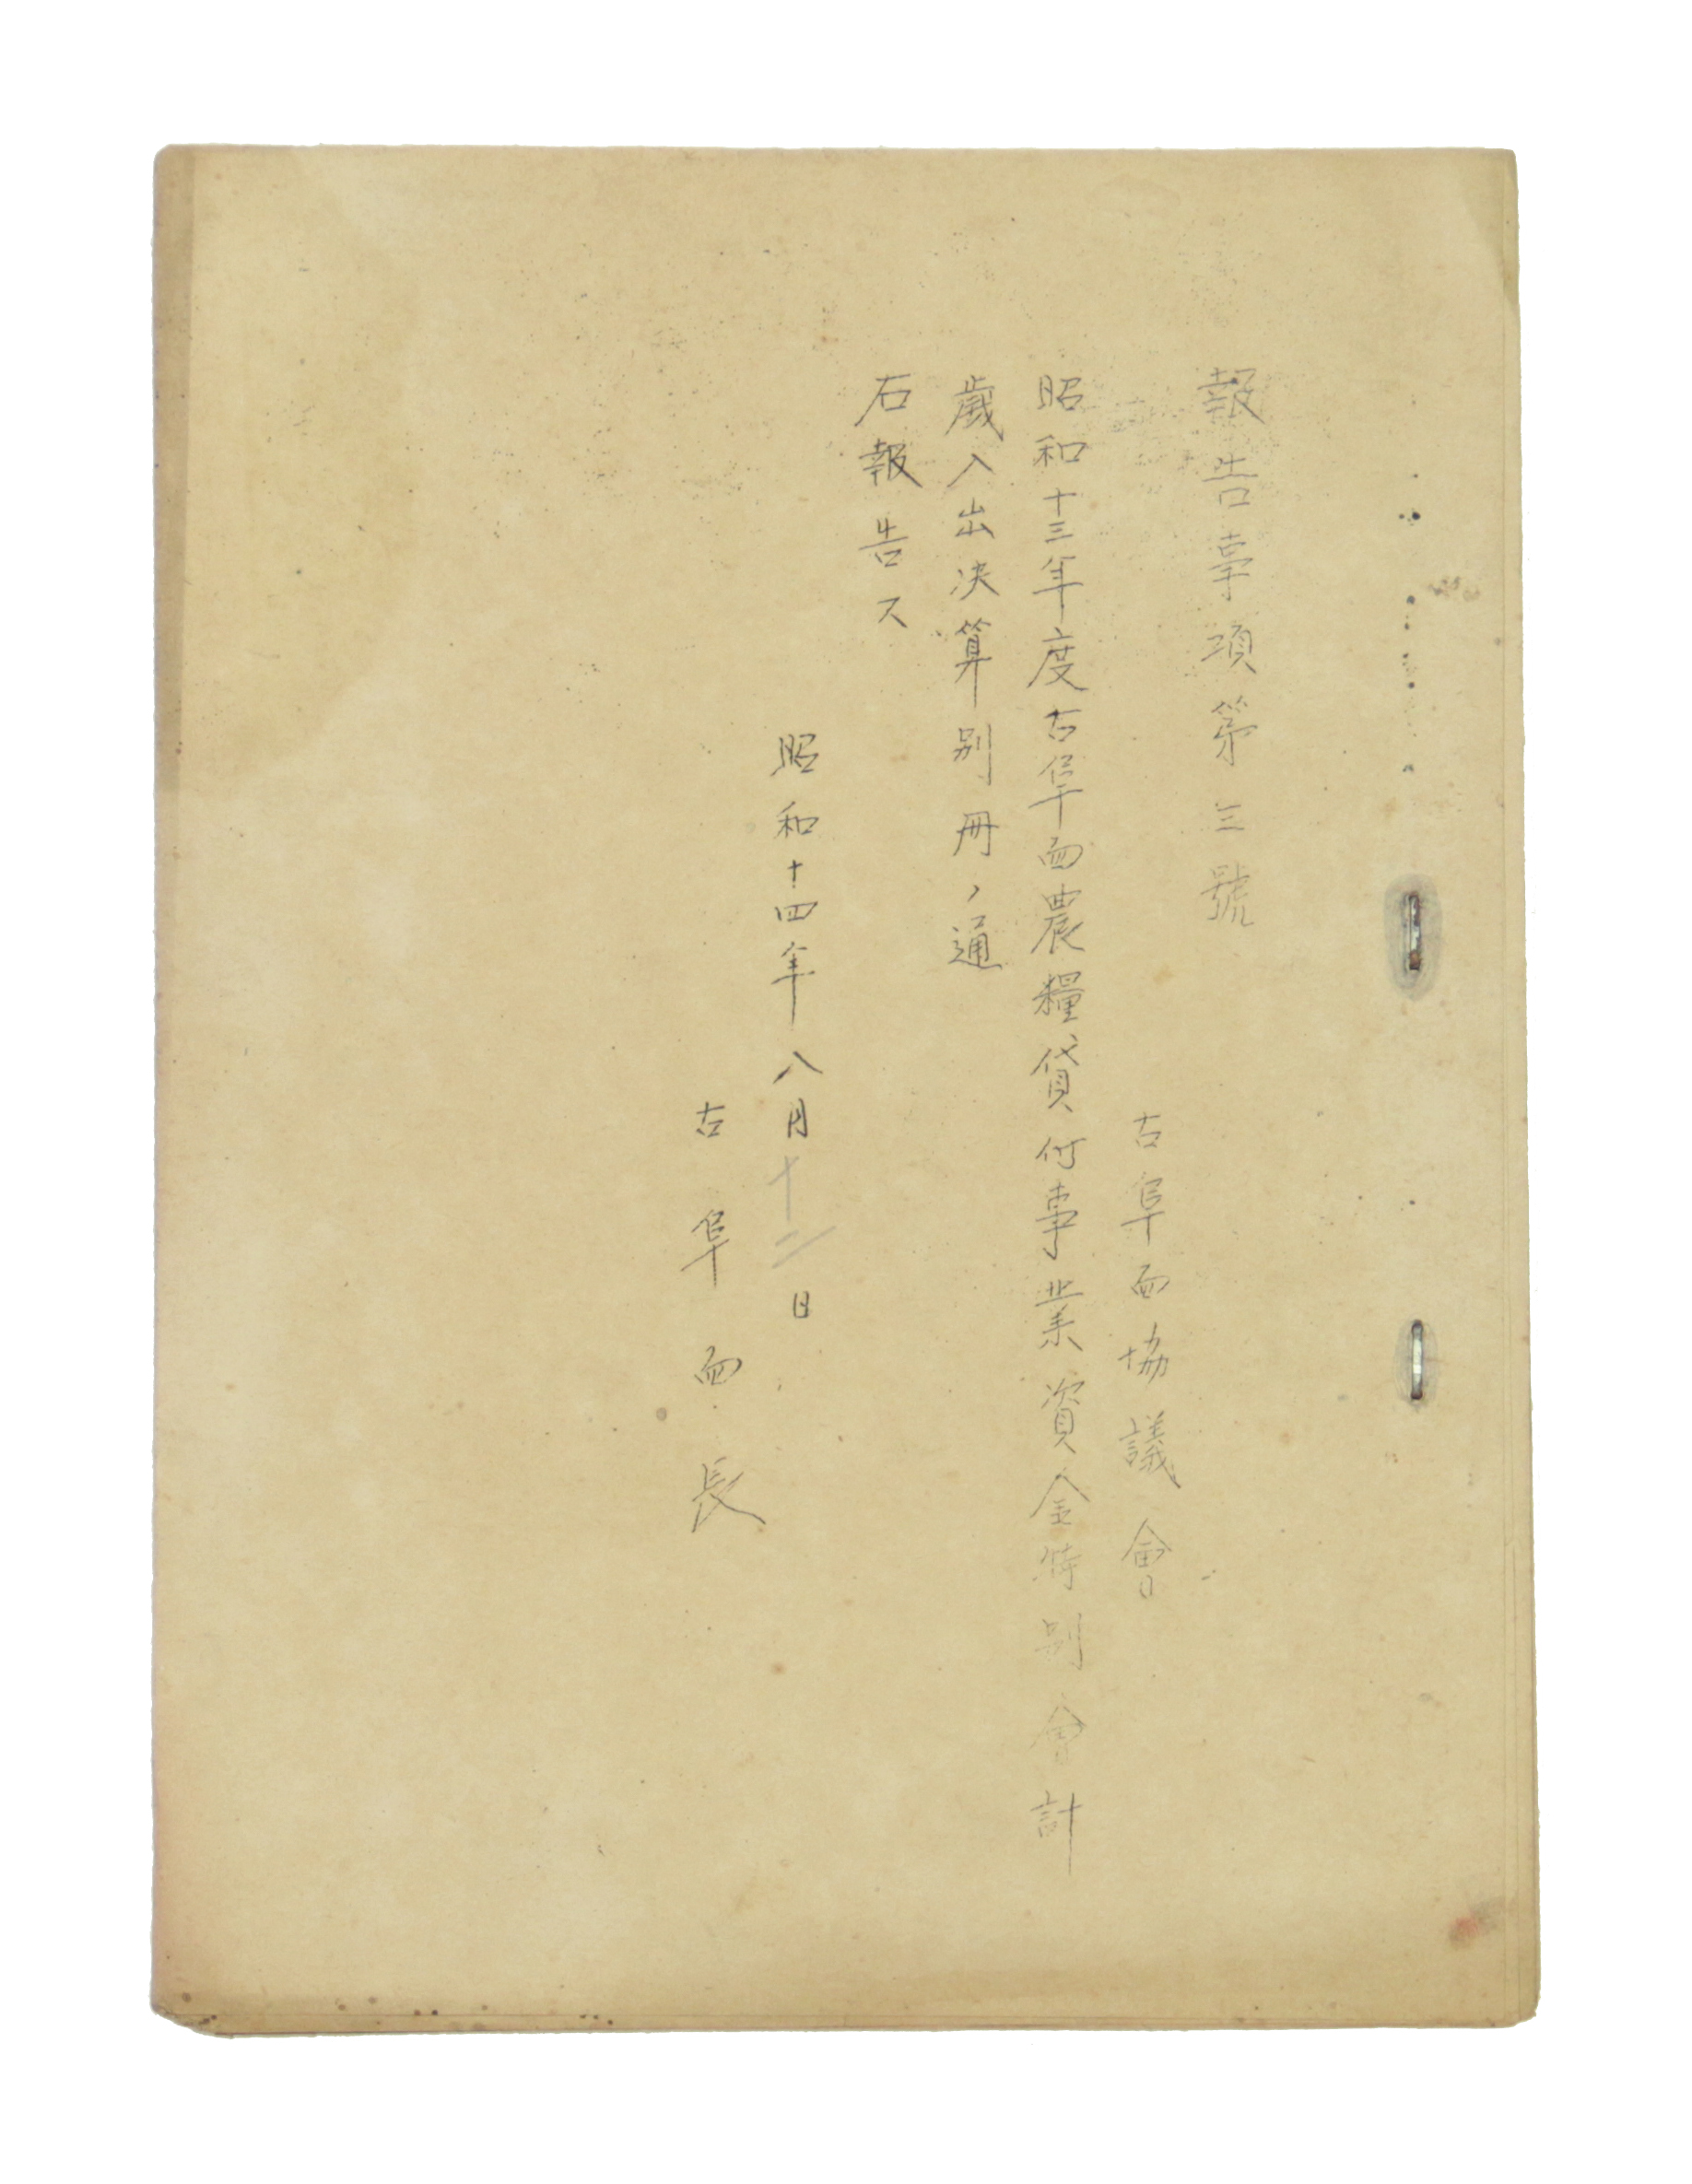 報告事項第三號
古阜面協議會
昭和十三年度古阜面農糧貸付事業資金特別會計
歲入出決算別冊ノ通
右報告ス
昭和十四年八月十二日
古阜面長